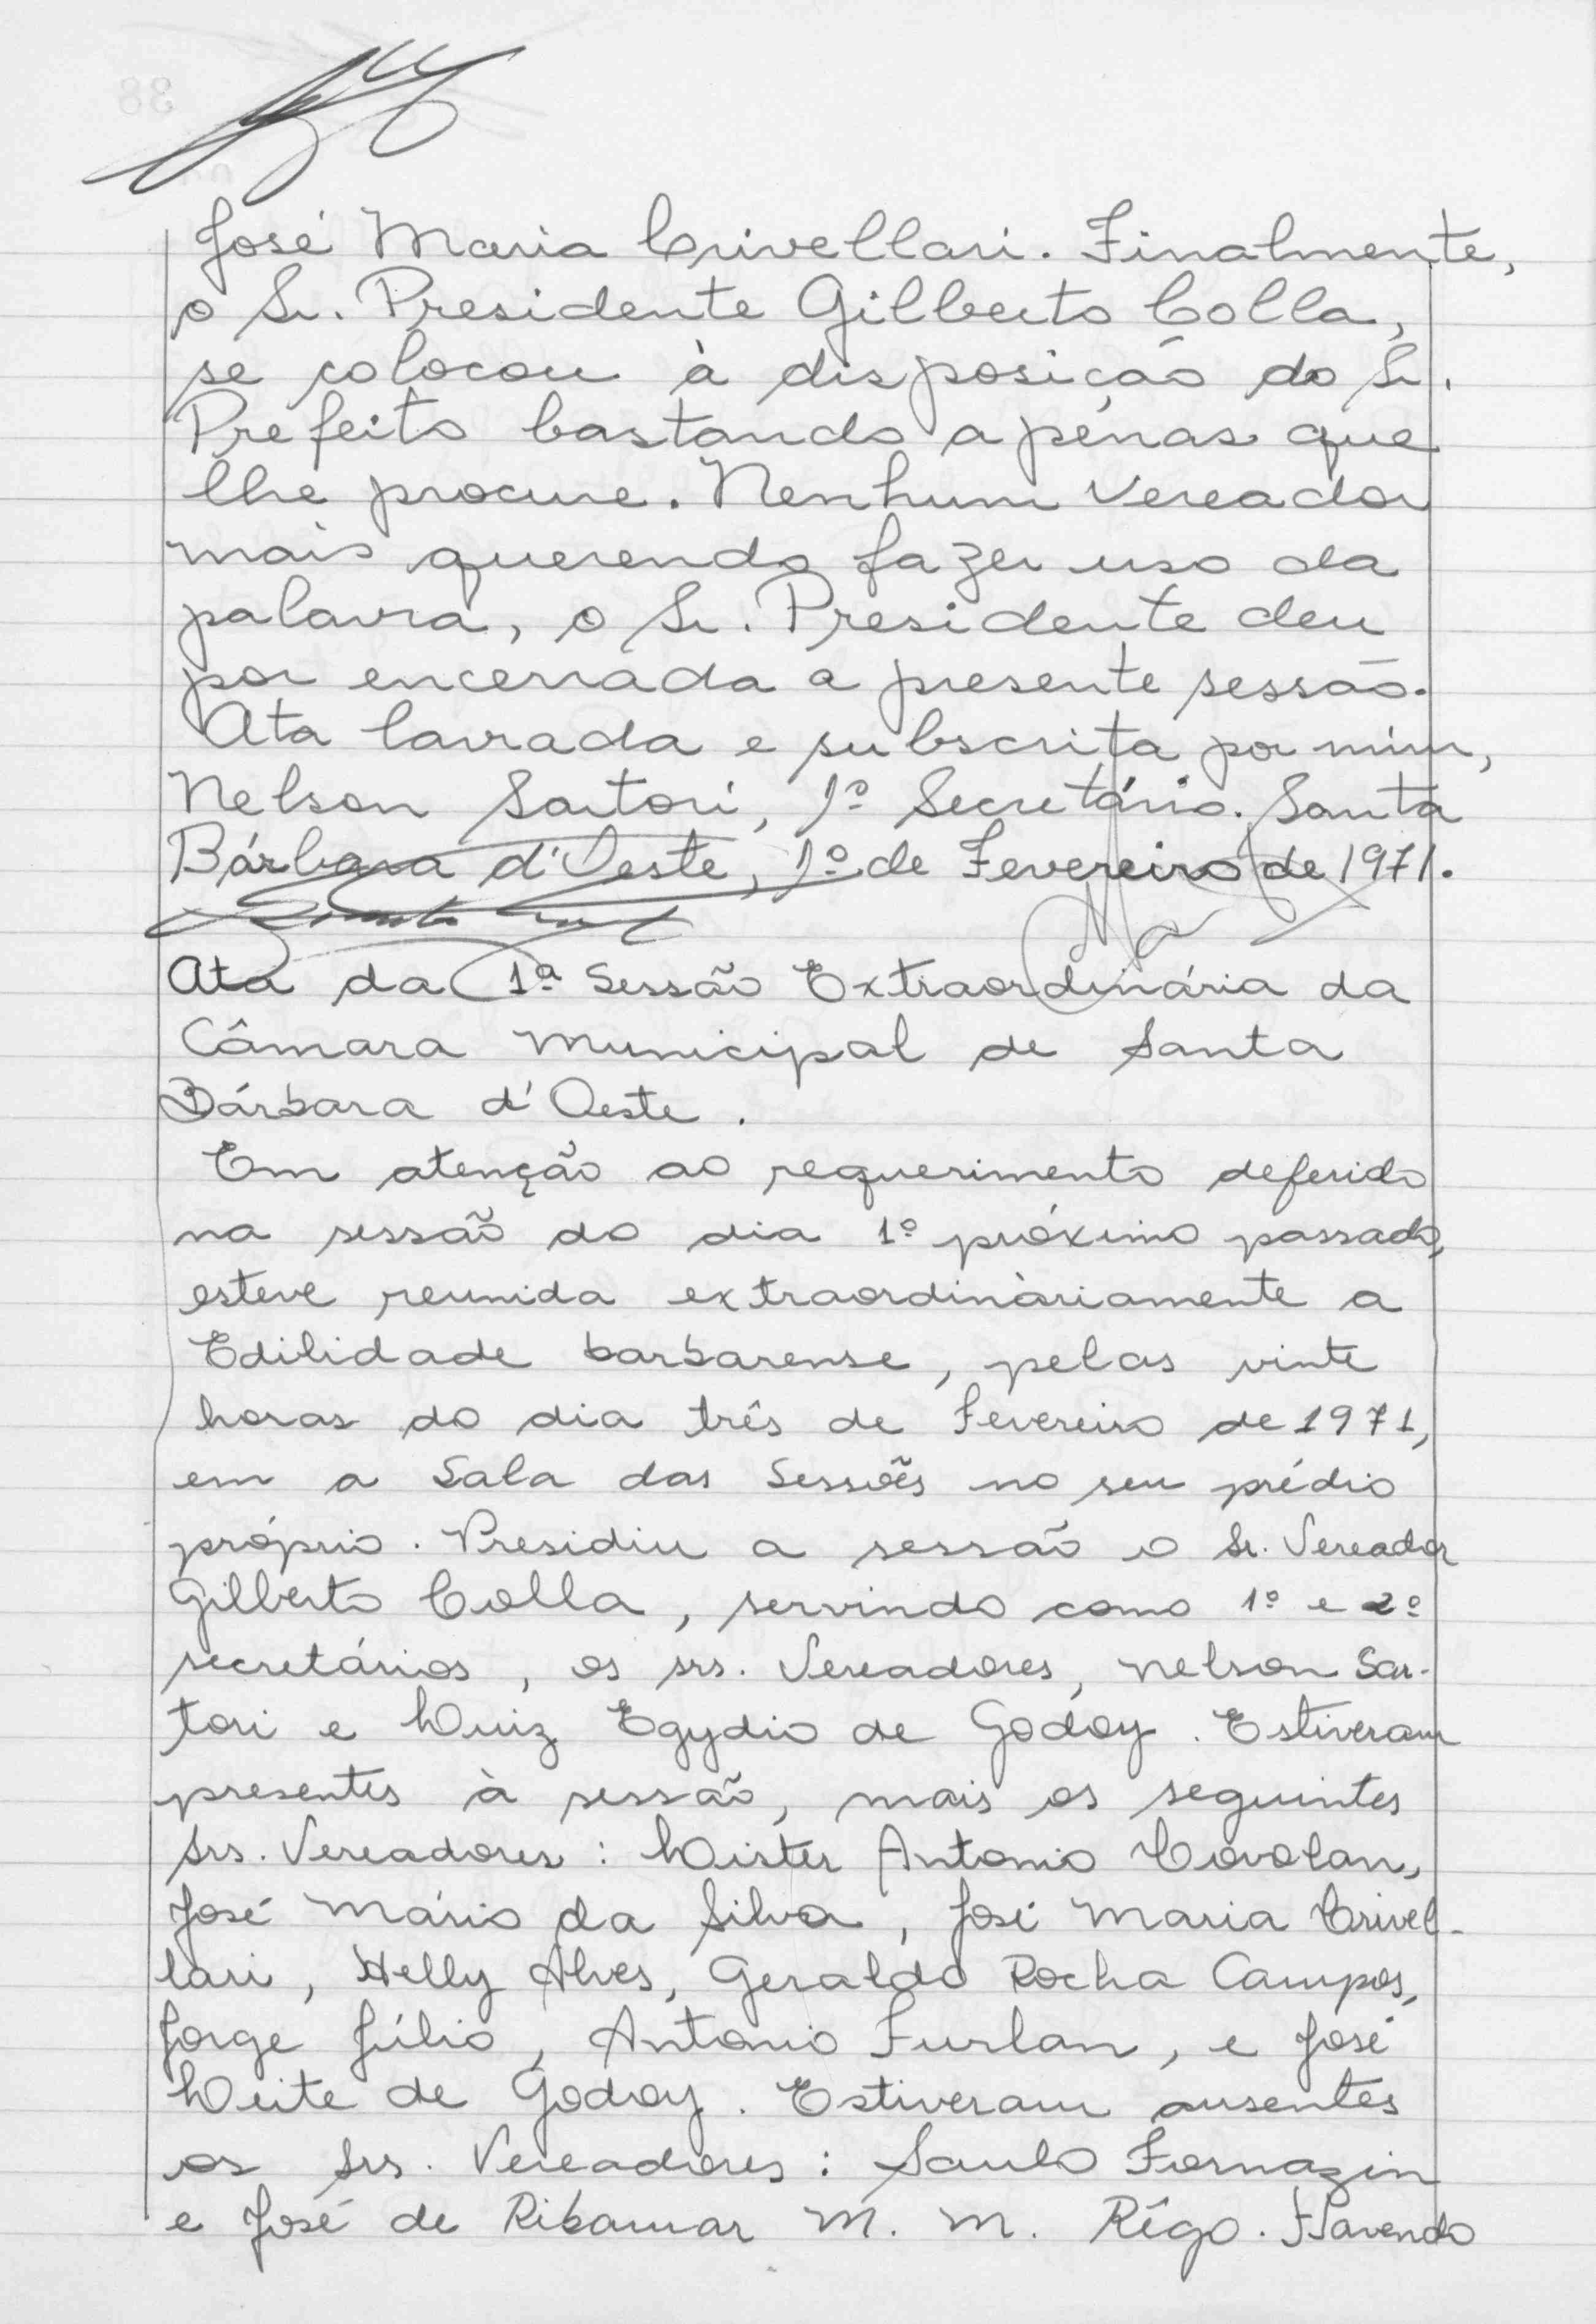 José Maria Crivellari. Finalmente,
o Sr. Presidente Gilberto Colla,
se colocou à disposição do Sr.
Prefeito bastando apenas que
lhe procure. Nenhum Vereador
mais querendo fazer uso da
palavra, o Sr. Presidente deu
por encerrada a presente sessão.
Ata lavrada e subscrita por mim,
Nelson Sartori, 1º Secretário. Santa
Bárbara d'Oeste, 1º de Fevereiro de 1971.
Ata da 1ª Sessão Extraordinária da
Câmara Municipal de Santa
Bárbara d'Oeste.
Em atenção ao requerimento deferido
na sessão do dia 1º próximo passado,
esteve reunida extraordinàriamente a
Edilidade barbarense, pelas vinte
horas do dia três de Fevereiro de 1971,
em a Sala das Sessões no seu prédio
próprio. Presidiu a sessão o Sr. Vereador
Gilberto Colla, servindo como 1º e 2º
secretários, os srs. Vereadores, Nelson Sar-
tori e Luiz Egydio de Godoy. Estiveram
presentes à sessão, mais os seguintes
Srs. Vereadores: Lister Antonio Covolan,
José Mário da Silva, José Maria Crivel-
lari, Helly Alves, Geraldo Rocha Campos,
Jorge Júlio, Antonio Furlan, e José
Leite de Godoy. Estiveram ausentes
os Srs. Vereadores: Saulo Fornazin
e José de Ribamar M. M. Rêgo. Havendo